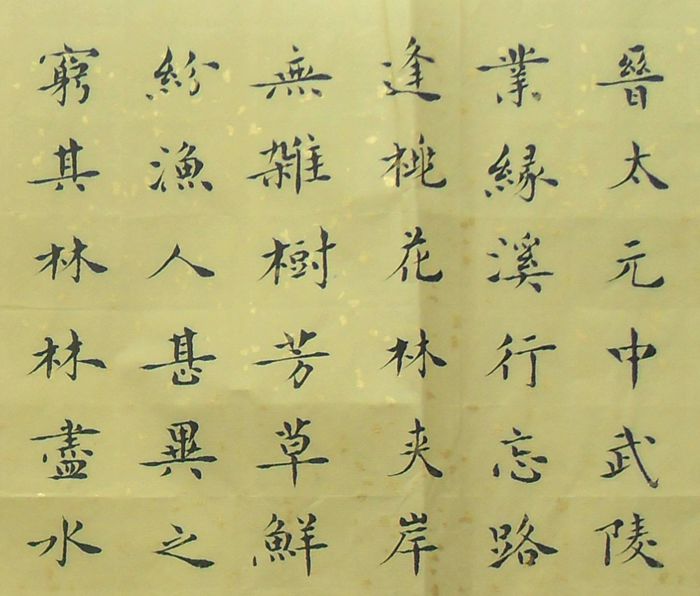 晉太元中武陵
業緣溪行忘路
逢桃花林夾岸
無雜樹芳草鮮
紛漁人甚異之
窮其林林盡水